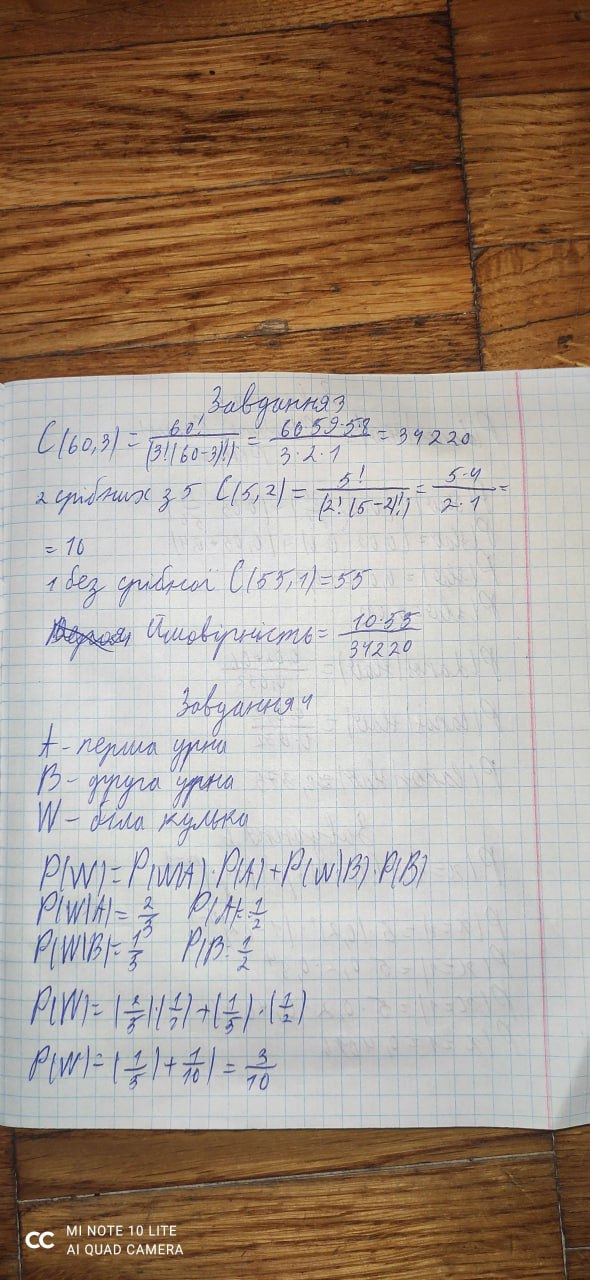 Завдання 3
C(60,3) = 60! / (3!(60-3)!) = 60·59·58 / 3·2·1 = 34220
2 срібних з 5 C(5,2) = 5! / (2!(5-2)!) = 5·4 / 2·1 =
= 10
1 без срібної C(55,1) = 55
Ймовірність = 10·55 / 34220
Завдання 4
A - перша урна
B - друга урна
W - біла кулька
P(W) = P(W|A)·P(A) + P(W|B)·P(B)
P(W|A) = 2/5 P(A) = 1/2
P(W|B) = 1/5 P(B = 1/2
P(W) = (2/5)·(1/2) + (1/5)·(1/2)
P(W) = (1/5) + 1/10) = 3/10
MI NOTE 10 LITE
AI QUAD CAMERA